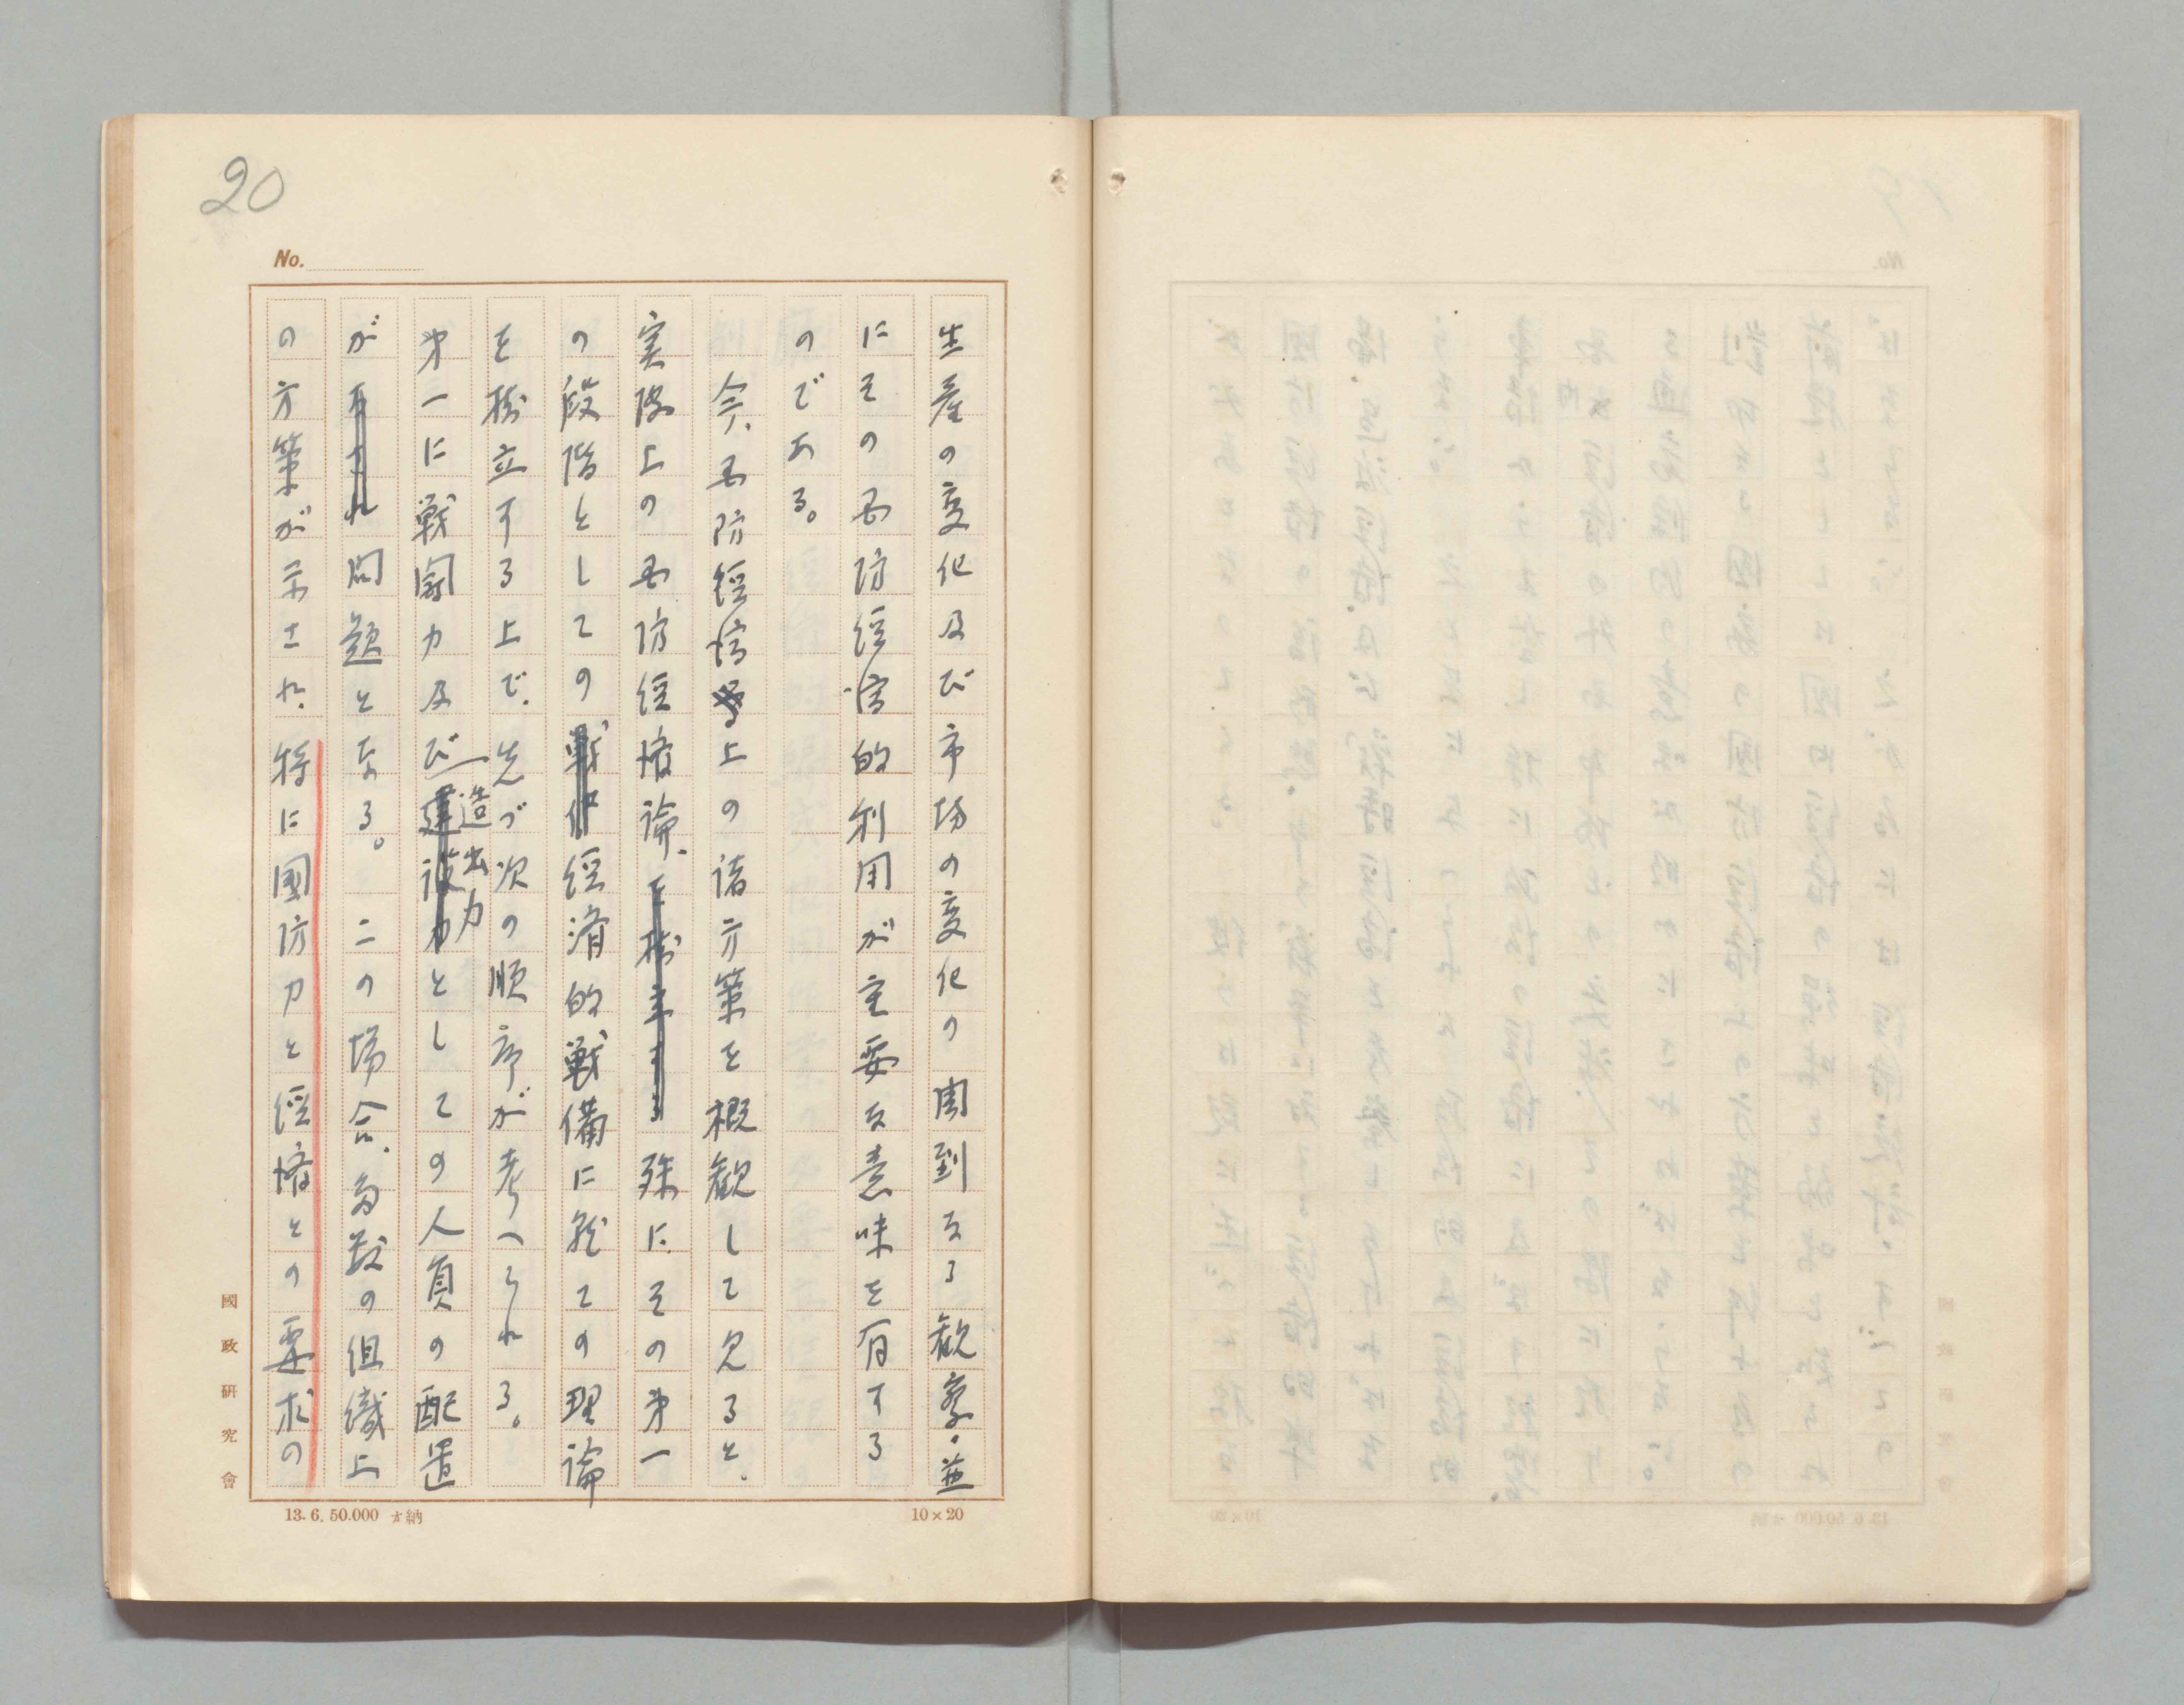 20
No.
生産の変化及び市場の変化の周到なる観察・並
にその国防経済的利用が主要な意味を有する
のである。
今、国防経済上の諸方策を概観して見ると、
実際上の国防経済論、殊に、その第一
の段階としての経済的戦備に就ての理論
を樹立する上で、先づ次の順序が考へられる。
第一に戦闘力及び造出力としての人員の配置
が問題となる。この場合、多数の組織上
の方策が示され、特に國防力と経済との要求の
國政研究會
13. 6. 50.000 納
10×20